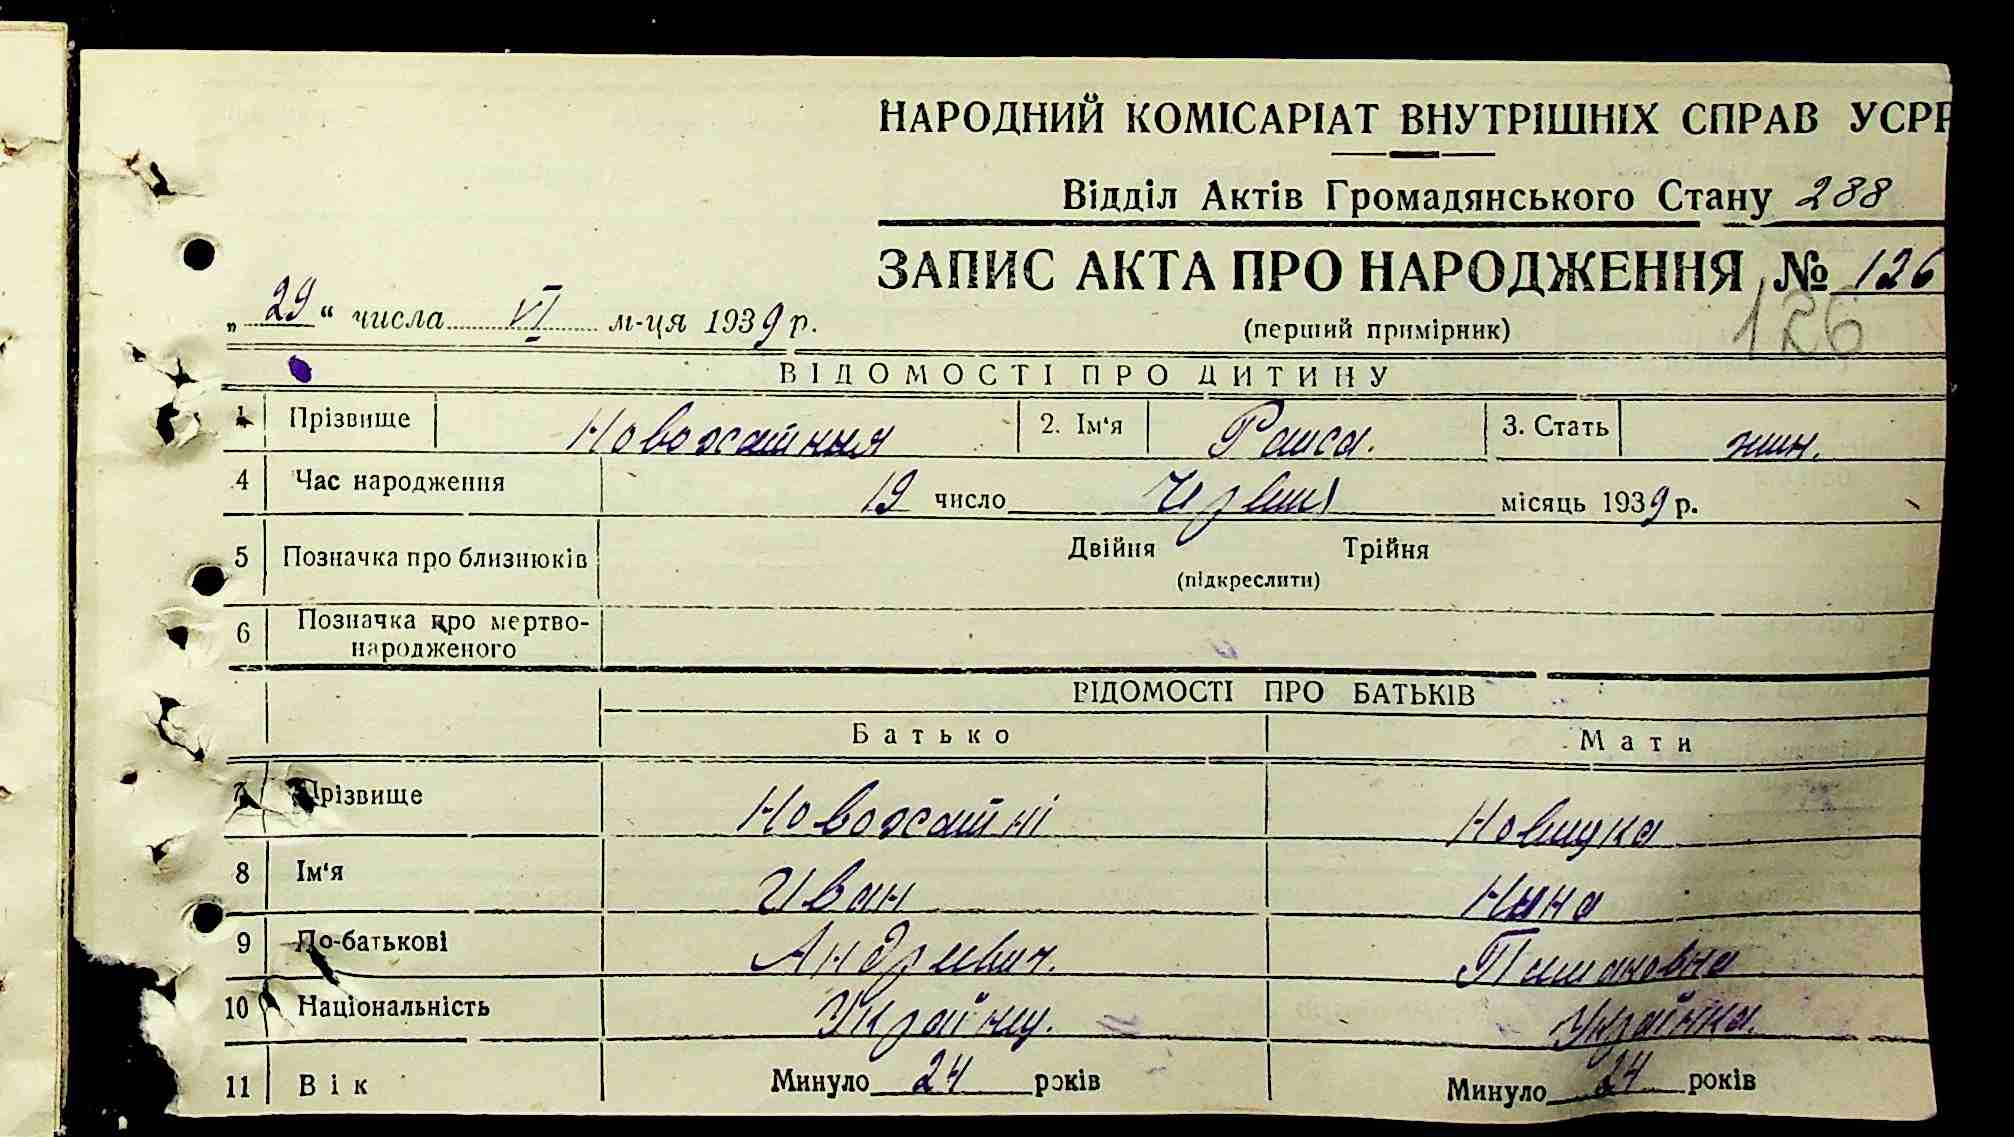 НАРОДНИЙ КОМІСАРІАТ ВНУТРІШНІХ СПРАВ УСРР
Відділ Актів Громадянського Стану 288
ЗАПИС АКТА ПРО НАРОДЖЕННЯ № 126
„29“ числа VI м-ця 1939 р.
(перший примірник) 126
ВІДОМОСТІ ПРО ДИТИНУ
1 Прізвище Новохатня 2. Ім'я Раиса. 3. Стать жин.
4 Час народження 19 число Червня місяць 1939 р.
5 Позначка про близнюків Двійня Трійня
(підкреслити)
6 Позначка про мертво-
народженого
ВІДОМОСТІ ПРО БАТЬКІВ
Батько Мати
7 Прізвище Новохатні
8 Ім'я Иван Нина
9 По-батькові Андреевич.
10 Національність Українец. Українка.
11 Вік Минуло 24 років Минуло 24 років